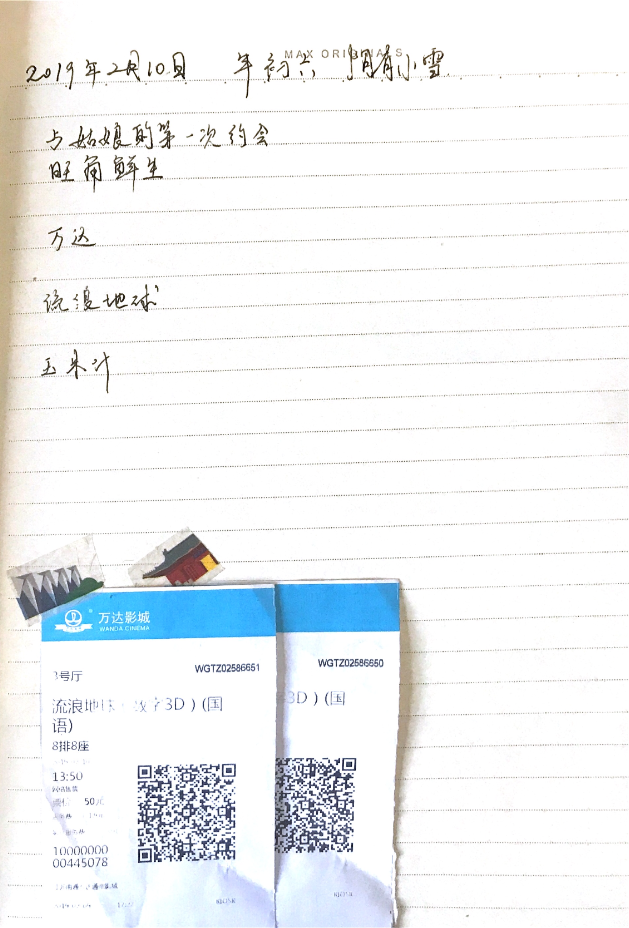 MAX ORIGINALS
2019年2月10日 年初六 阴有小雪
与姑娘的第一次约会
旺角鲜生
万达
流浪地球
玉米汁
万达影城
WANDA CINEMA
3号厅
WGTZ02586651
流浪地球(数字3D)(国
语)
8排8座
13:50
50元
10000000
00445078
WGTZ02586650
3D)(国